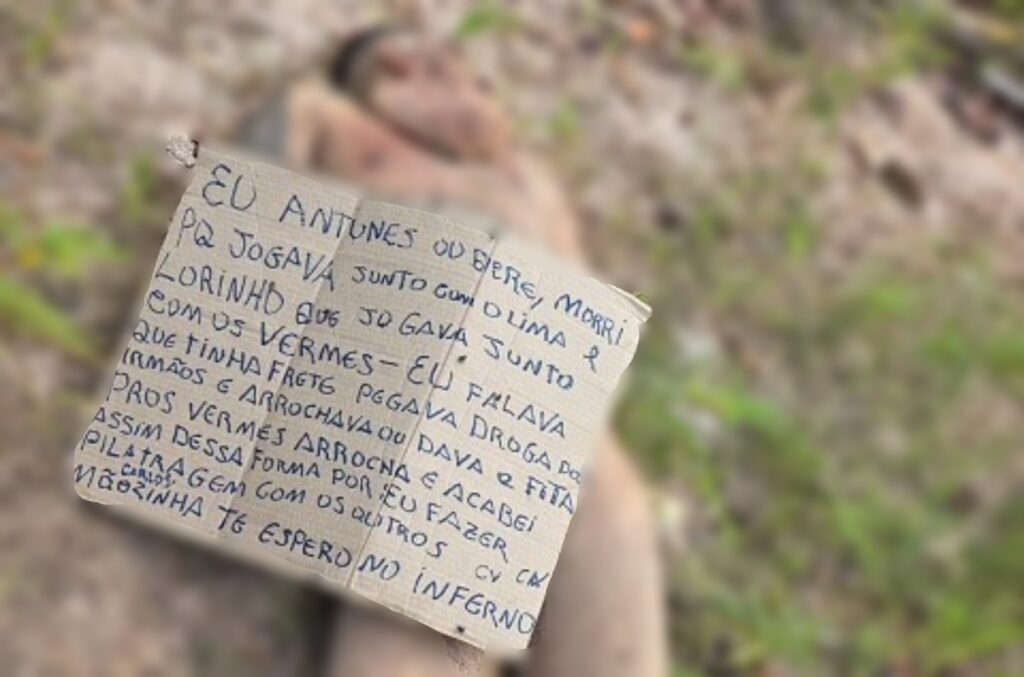 EU ANTUNES OU BERE, MORRI
PQ JOGAVA JUNTO COM O LIMA e
LORINHO QUE JOGAVA JUNTO
COM OS VERMES - EU FALAVA
QUE TINHA FRETE PEGAVA DROGA DO
IRMÃOS E ARROCHAVA OU DAVA e FITA
PROS VERMES ARROCHA E ACABEI
ASSIM DESSA FORMA POR EU FAZER
PILATRAGEM COM OS OUTROS CV
CARLOS
MÃOZINHA TE ESPERO NO INFERNO